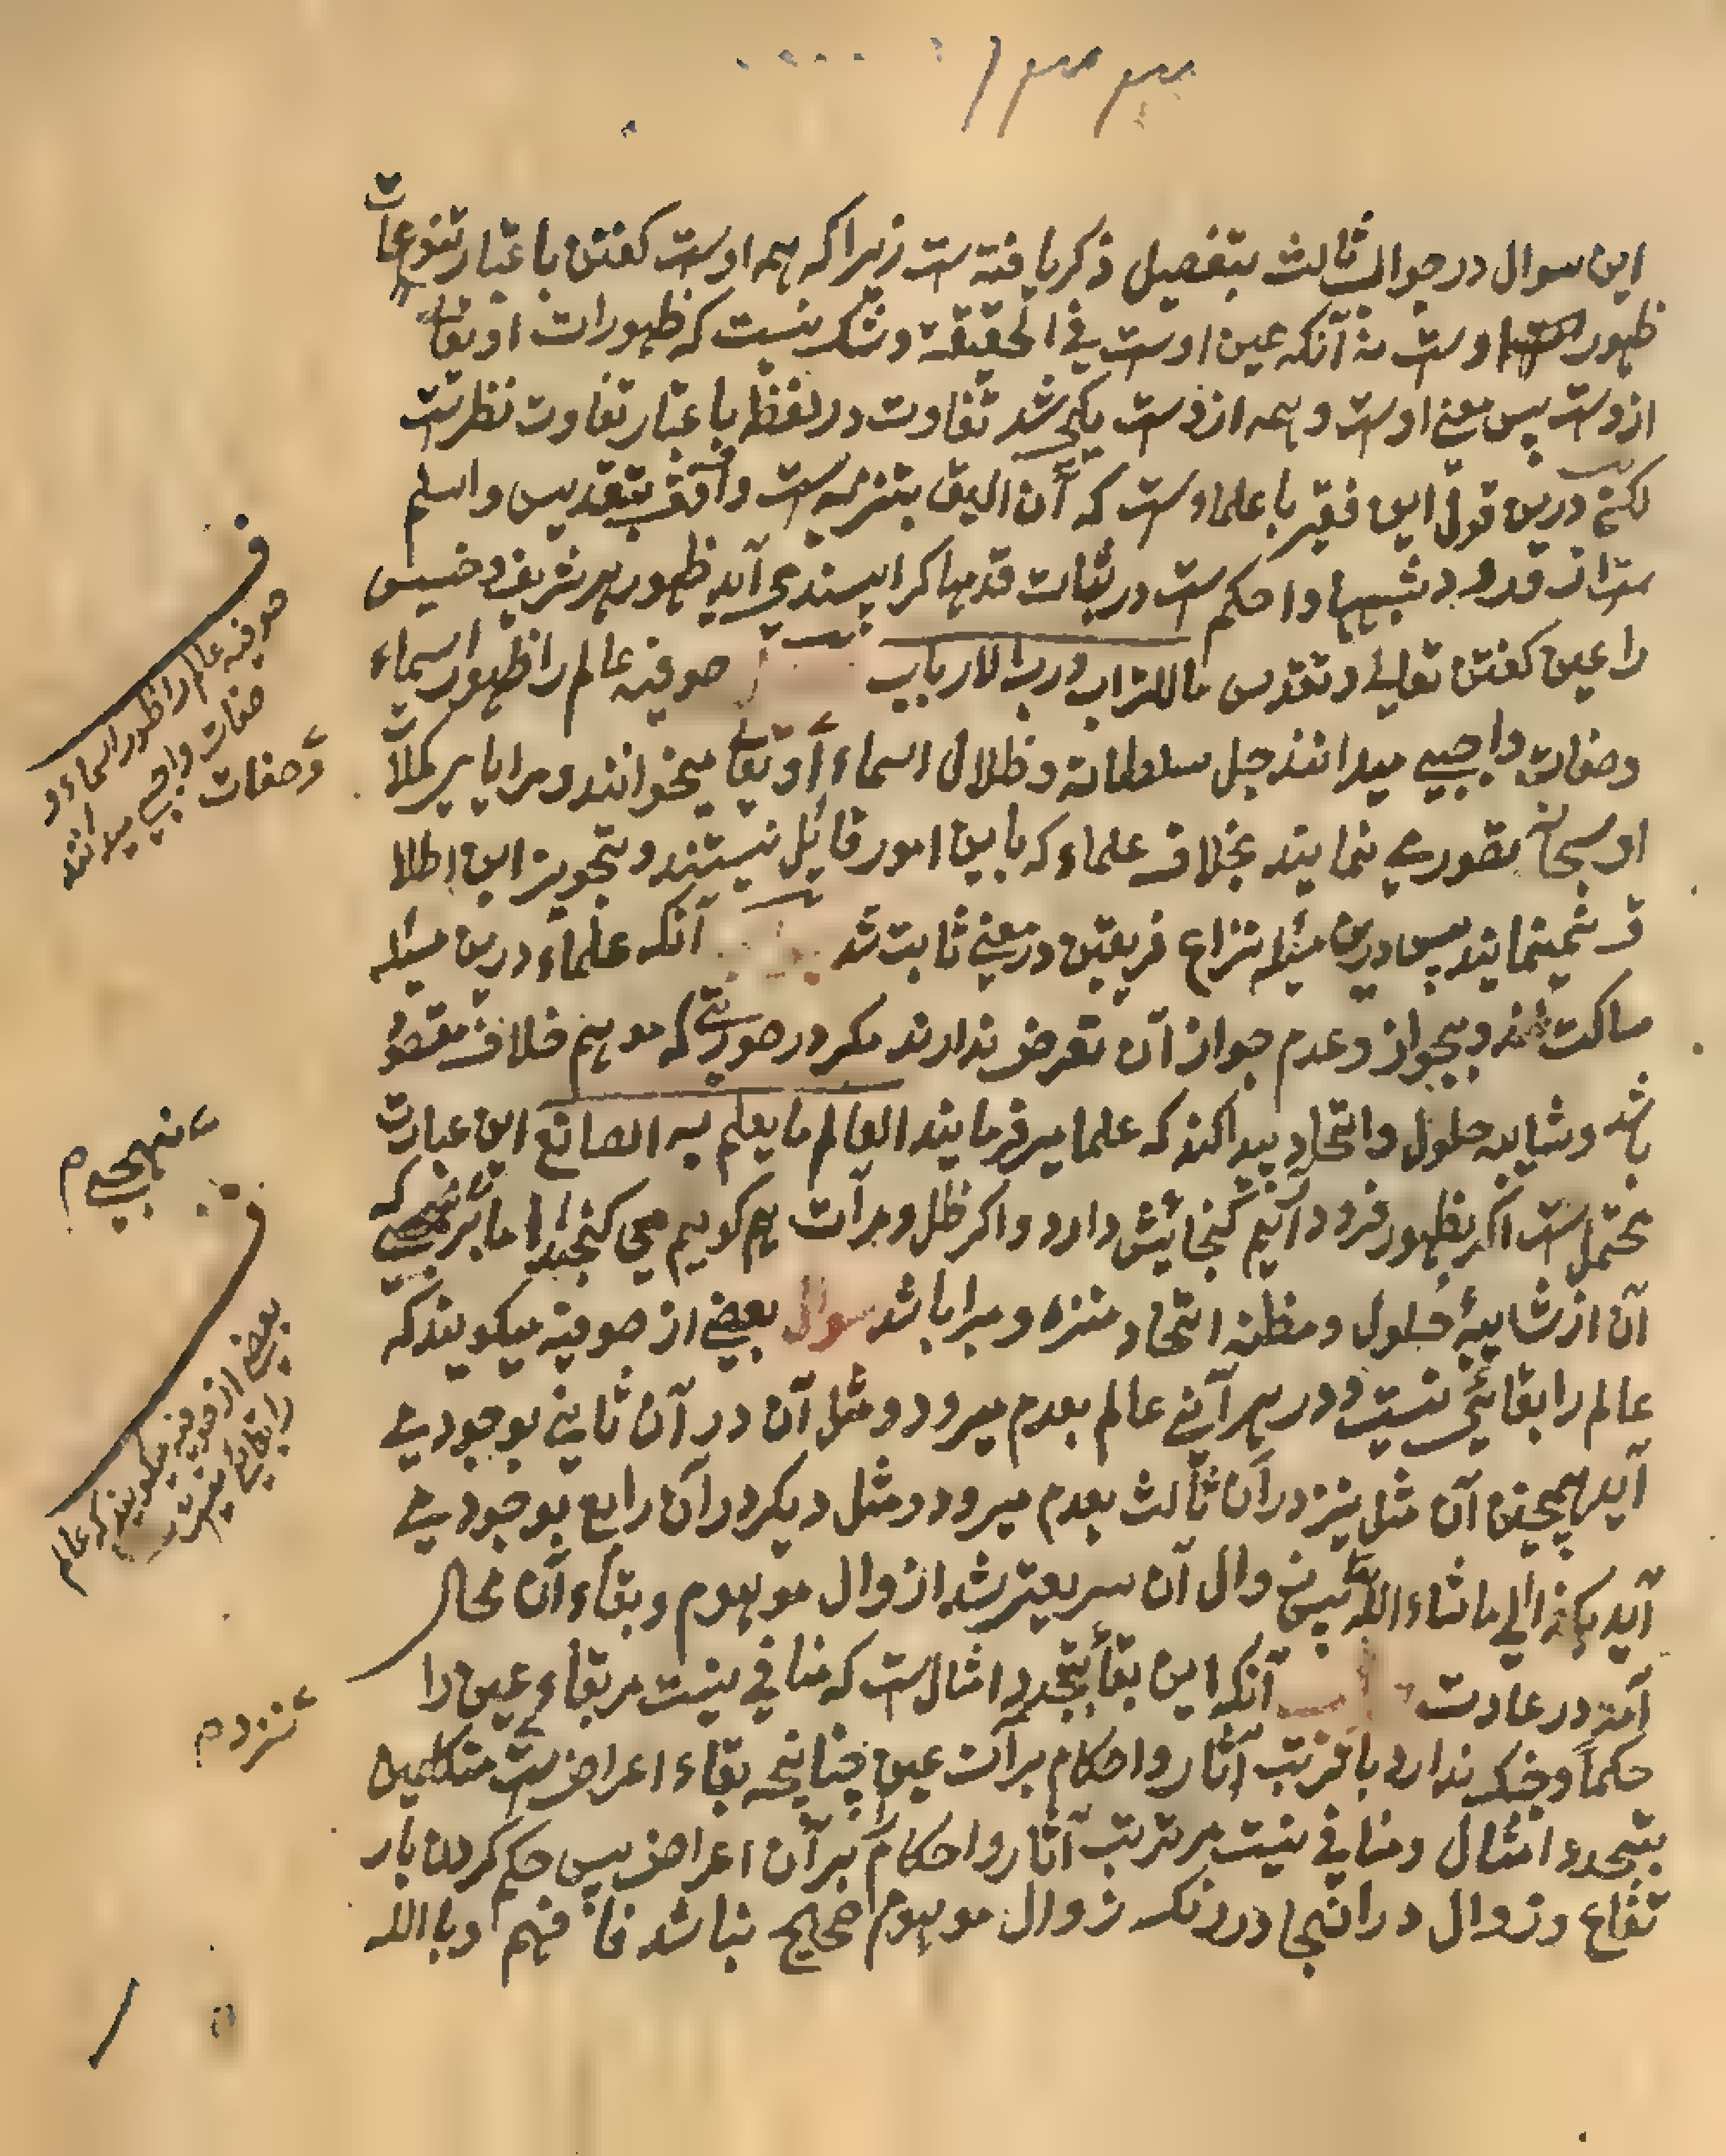 این سوال در جواب ثالث بتفصیل ذکر یافته ست زیرا که همه اوست کفتن باعتبار تنوعات
ظهور اوست نه آنکه عین اوست فی الحقیقة و شک نیست که ظهورات او تعا
ازوست پس معنے اوست و همه ازوست یکی شد تفاوت در لفظ باعتبار تفاوت نظرست
لکن درین قول این فقیر با علماوست که آن الیق بتنزیه ست و اوفق بتقدیس و اسلم
ست از قدم و احکم ست در ثبات قدمها کرا پسندی آید ظهور هر شریف و خسیس
را عین کفتن تعالے و تقدس ما للتراب و رب الارباب صوفیه عالم را ظهور اسماء
و صفات واجبیے میدانند جل سلطانه و ظلال اسماء او تعا میخوانند و مرایا پر کمالات
او سبحانه تصور مے نمایند بخلاف علماء که باین امور قایل نیستند و تجویز این اطلا
ق نمینمایند پس درین مسئله نزاع فریقین در معنے ثابت شد آنکه علماء درین مسئله
ساکت اند و بجواز و عدم جواز آن تعرض ندارند مکر در صورتی که موهم خلاف مقصو
باشد و شایبه حلول و اتحاد پیدا کند که علما میفرمایند العالم ما یعلم به الصانع این عبارت
محتمل ست اکر بظهور فرود آئیم کنجایش دارد و اکر ظل و مرآت هم کوییم می کنجد اما بشرطے که
آن از شایبهٔ حلول و مظنه اتحاد منزه و مبرا باشد سوال بعضے از صوفیه میکویند که
عالم را بقائی نیست و در هر آنے عالم بعدم میرود و مثل آن در آن ثانے بوجود مے
آید همچنین آن مثل نیز در آن ثالث بعدم میرود و مثل دیکر در آن رابع بوجود مے
آید هکذا الے ما شاء الله پس زوال آن سریعتر شد از زوال موهوم و بقاء آن محال
آمد در عادت آنکه این بقا بتجدد امثال ست که منافی نیست مر بقاء عین را
حکماً و جنک ندارد با ترتب آثار و احکام بر آن عین چنانچه بقاء اعراض ست متکلمین
بتجدد امثال و منافی نیست مر ترتب آثار و احکام بر آن اعراض پس حکم کردن بار
تفاع و زوال در انجا در رنک زوال موهوم صحیح نباشد فا فهم و بالله
صوفیه عالم را ظهور اسماء و
صفات واجبی میدانند
و صفات
بعضے از صوفیه میکویند که عالم